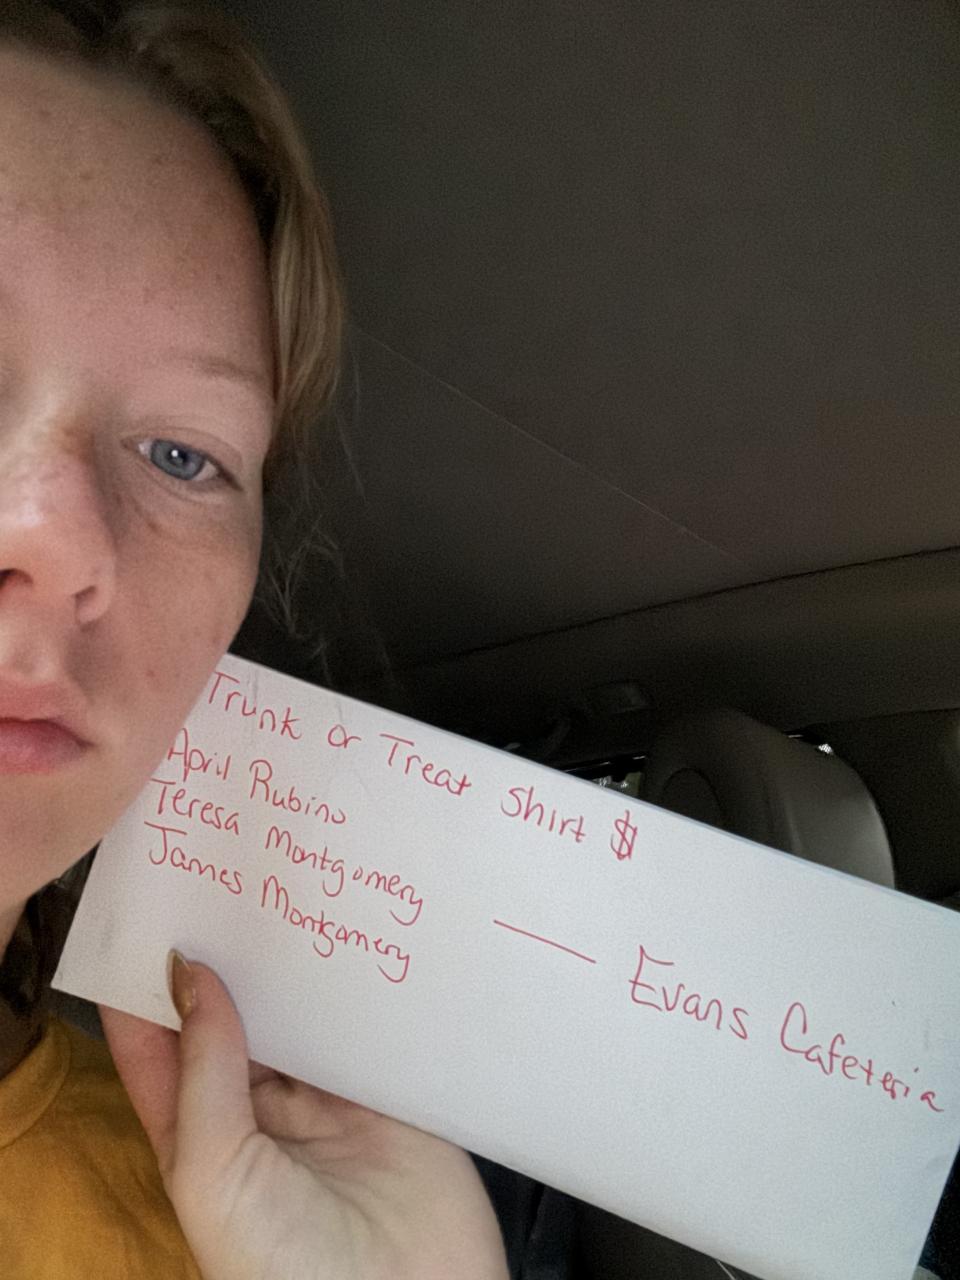 Trunk or Treat Shirt $
April Rubino
Teresa Montgomery
James Montgomery
— Evans Cafeteria